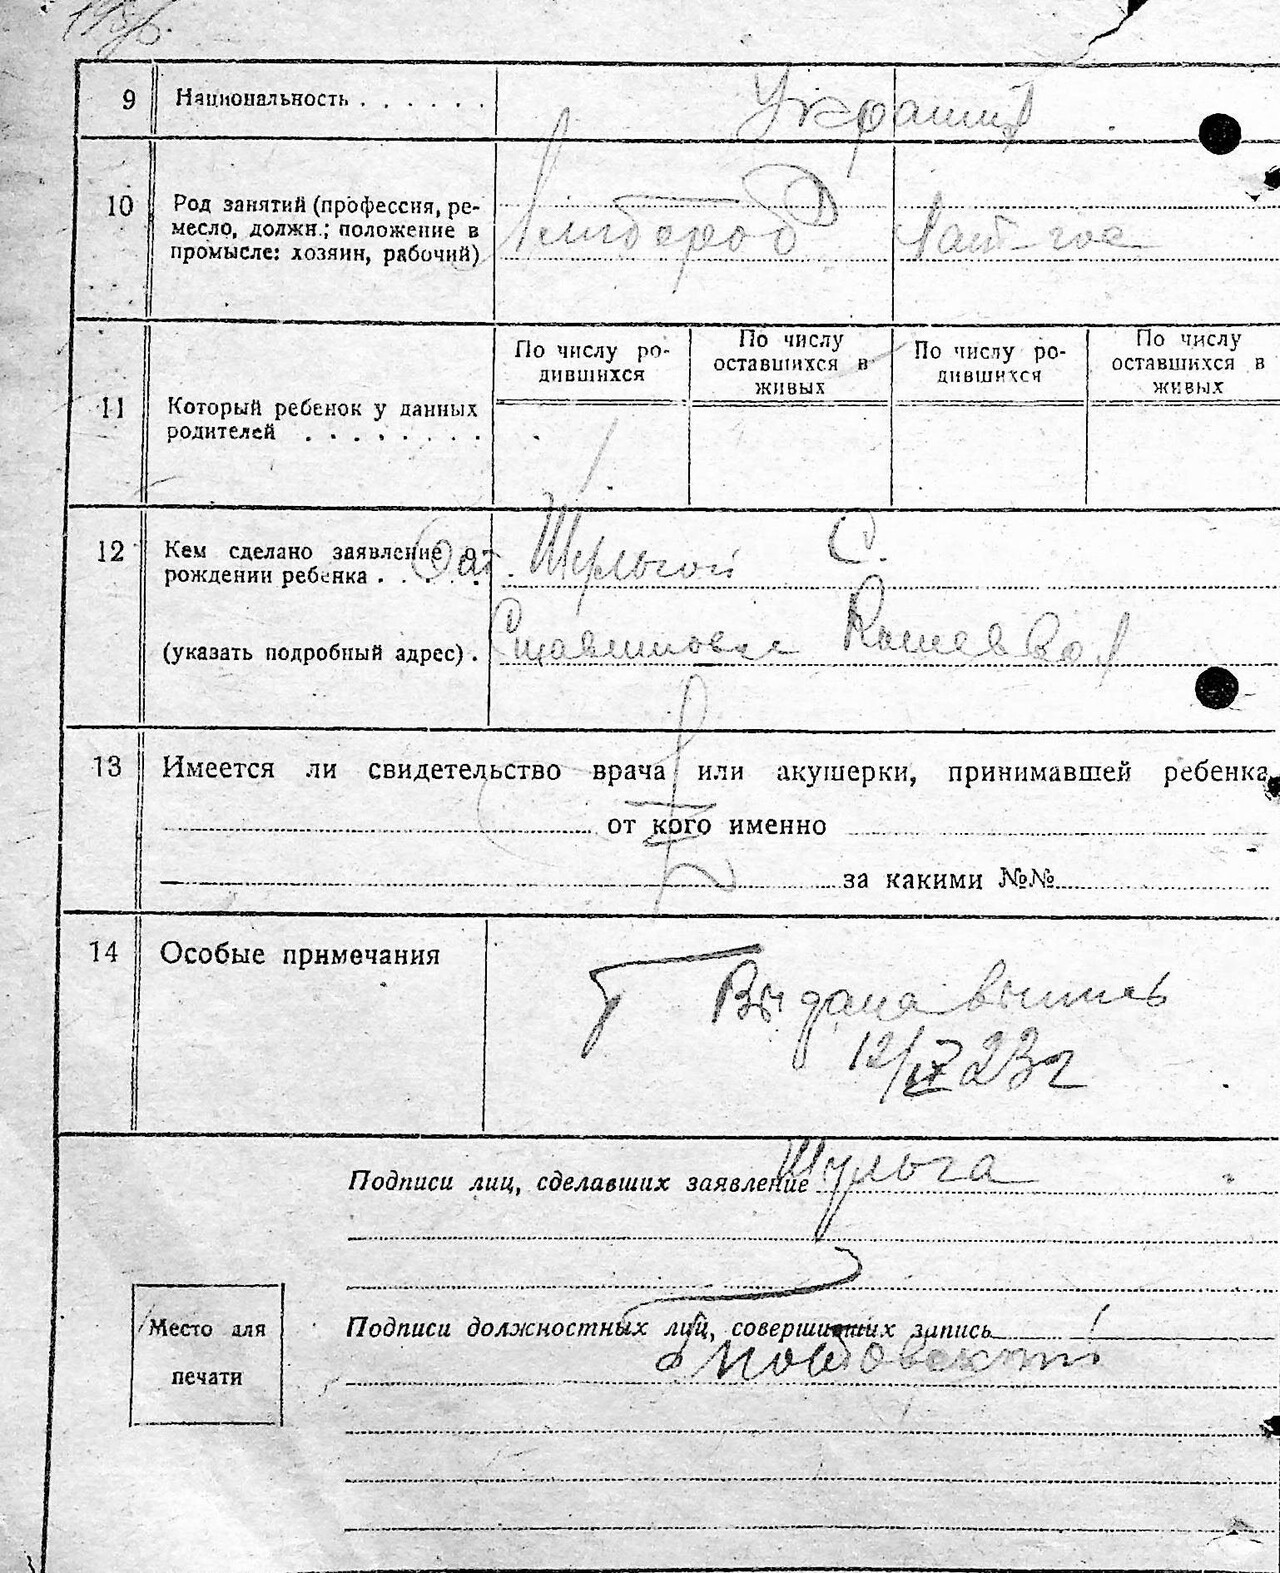 9 Национальность . . . . . .
10 Род занятий (профессия, ре-
месло, должн.; положение в
промысле: хозяин, рабочий)
По числу ро-
дившихся
По числу
оставшихся в
живых
По числу ро-
дившихся
По числу
оставшихся в
живых
11 Который ребенок у данных
родителей . . . . . . . .
12 Кем сделано заявление о
рождении ребенка . . Шульгой С.
(указать подробный адрес) .
13 Имеется ли свидетельство врача или акушерки, принимавшей ребенка
от кого именно
за какими №№
14 Особые примечания
Выдана выпись
12/IX 23 г
Подписи лиц, сделавших заявление Шульга
Подписи должностных лиц, совершивших запись
Место для
печати